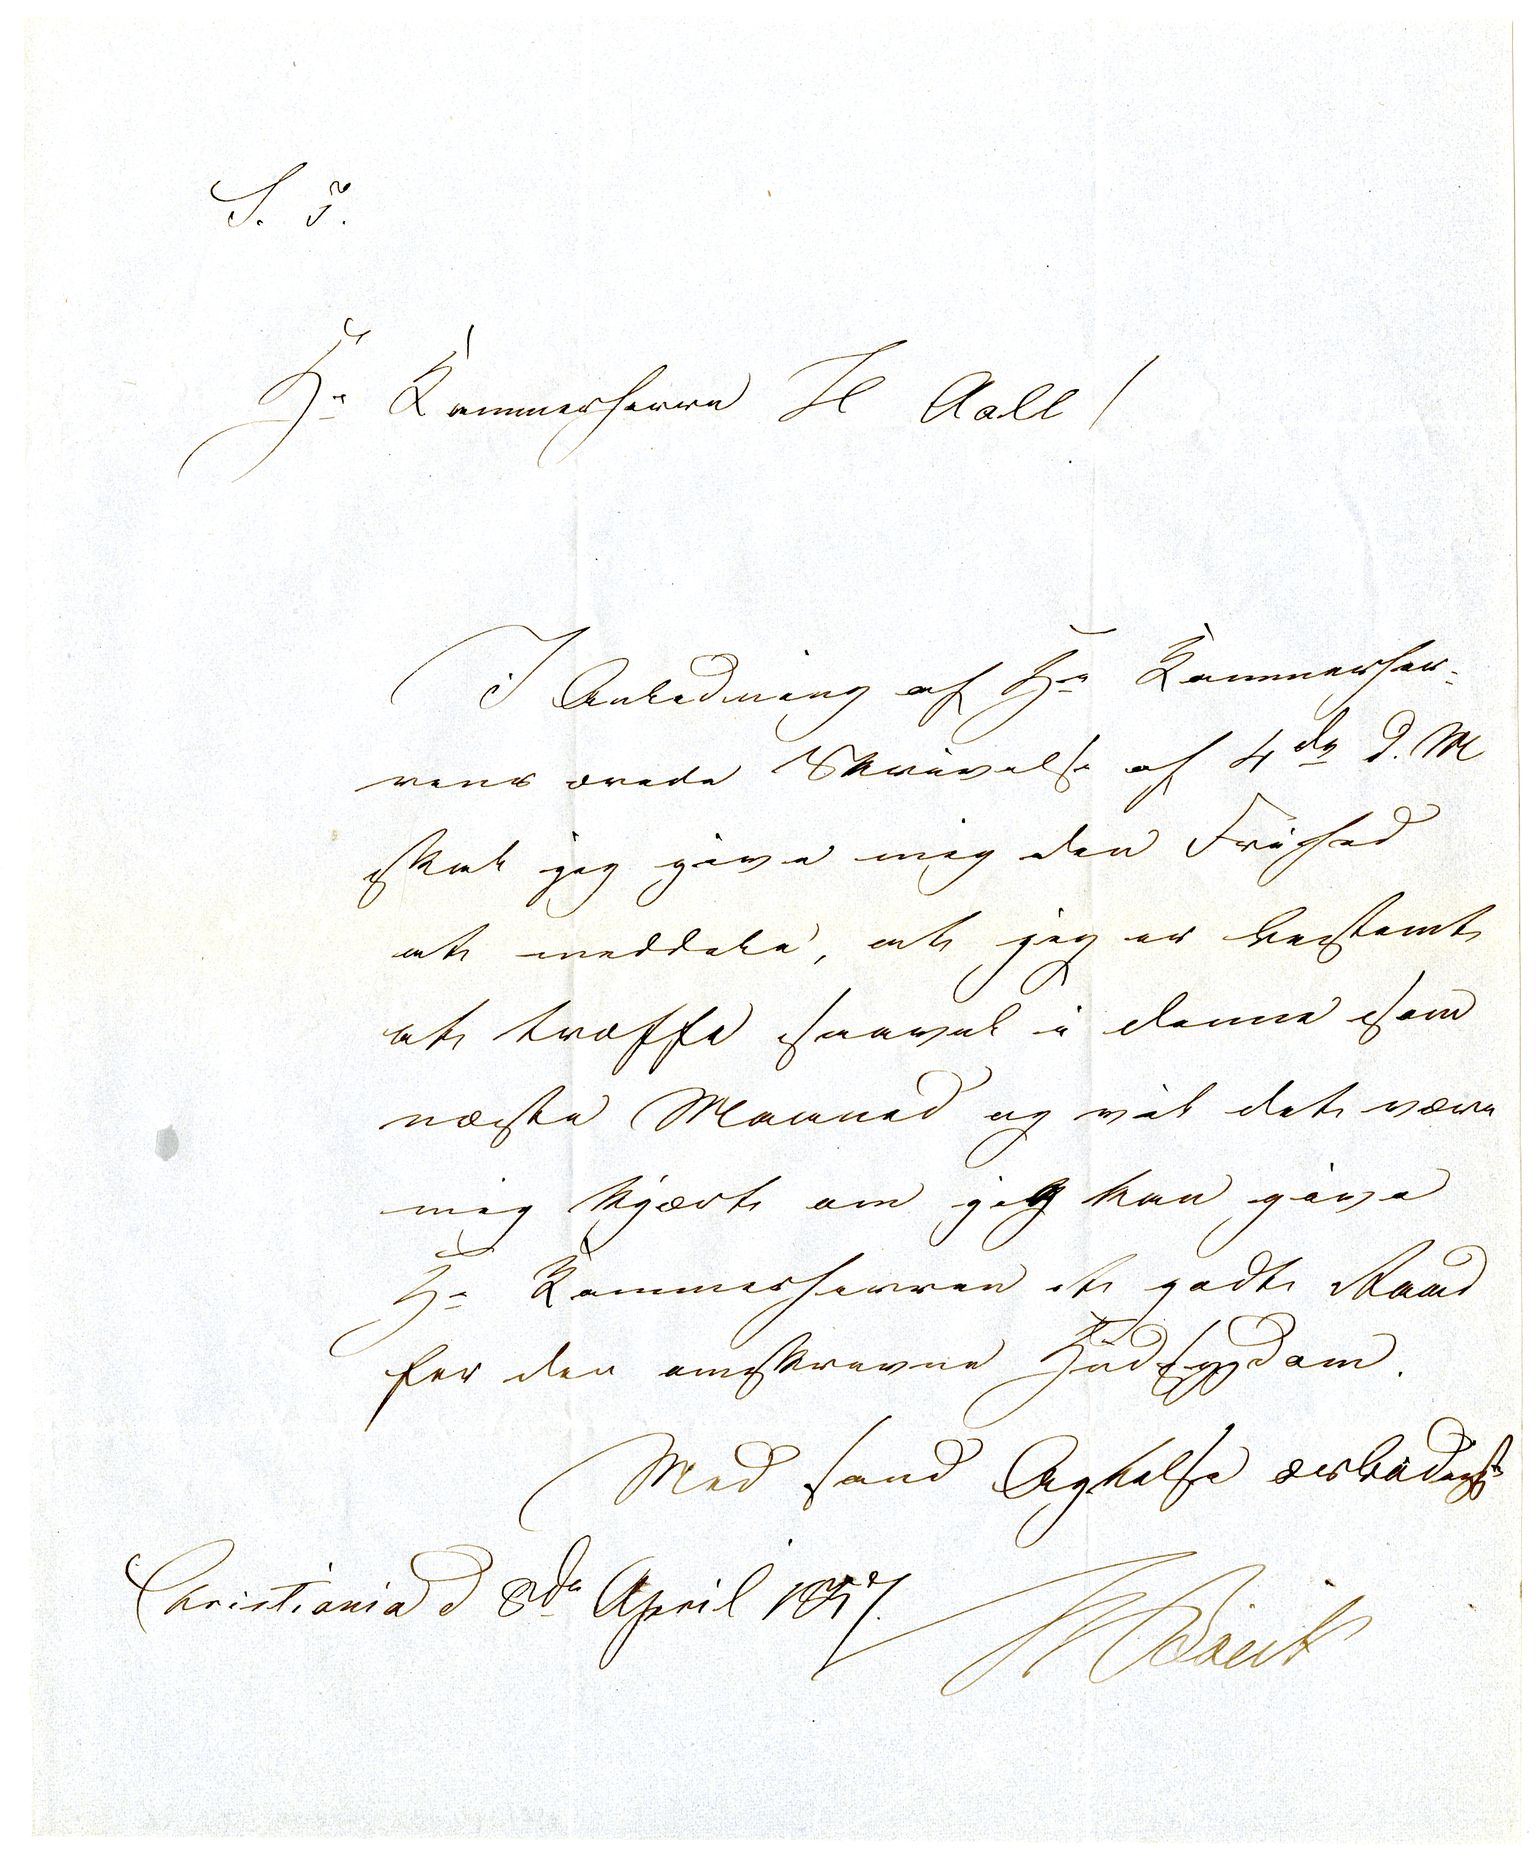 S. T.
Hr Kammerherre H Aall!
I Anledning af Hr Kammerher-
rens ærede Skrivelse af 4de d. M
skal jeg give mig den Frihed
at meddele, at jeg er bestemt
at træffe saavel i denne som
næste Maaned og vil det være
mig kjært om jeg kan give
Hr Kammerherren et godt Raad
for den omskrevne Hudsygdom.
Med sand Agtelse ærbødigst
Christiania d 8de April 1857.